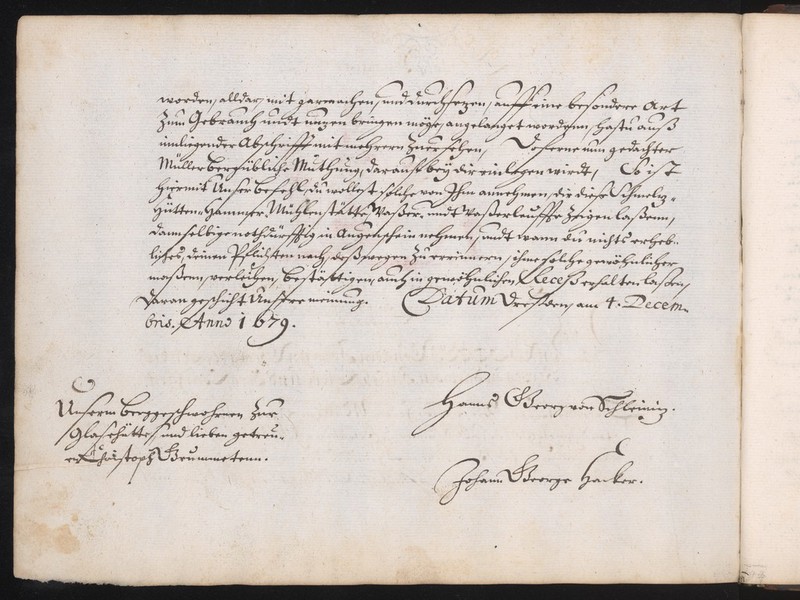 worden, alldar, mit garmachen, und durchsezen, auff eine besondere Art
zum Gebrauch undt nuzen bringen möge, angelanget wordenn, hastu auß
innliegender Abschrifft mit mehrern zuersehen, Woferne nun gedachter
Müller berfübliche Muthung, darauf bey dir einlegen wirdt, So ist
hiermit Unser befehl, du wollest solche von Ihm annehmen, dir diese Schmelz-
Hütten, Hammer, Mühlenstätte, Waßer, undt Waßerleuffte zeigen laßenn,
dann selbige nothdürfftig in Augenschein nehmen, undt wann du nichts erheb-
liches, deinen Pflichten nach, deßwegen zu erinnern, ihme solche gewöhnlicher
maßenn, verleihen, bestättigen, auch in gewöhnlichen Recess erhalten laßen,
daran geschicht Unsere meinung. Datum Dreßden, am 4. Decem-
bris. Anno 1679.
Hanns Georg von Schleiniz.
Unserm berggeschwohrnen zur
Glasehütte, und lieben getreu-
en Christoph
Johann George Hacker.